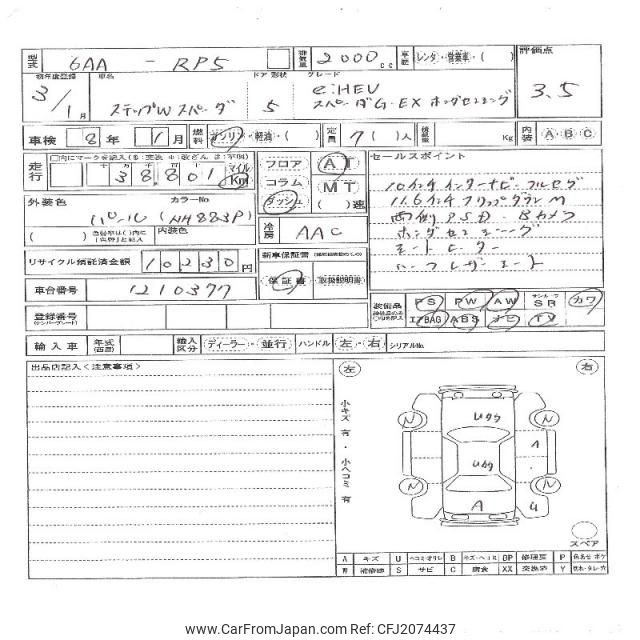 型式 6AA - RP5 排気量 2000 cc 車歴 レンタ・営業車・( ) 評価点
初年度登録 車名 ドア 形状 グレード
3/1月 ステップW スパーダ 5 e:HEV スパーダG・EX ホンダセンシング 3.5
車検 8年 1月 燃料 ガソリン・軽油・( ) 定員 7( )人 積載量 Kg 内装 A・B・C
走行 38,801 マイル Km
フロア AT
コラム MT
ダッシュ ( )速
セールスポイント
10インチインターナビ フルセグ
11.6インチフリップダウンM
両側PSD Bカメラ
ホンダセンシング
シートヒーター
ハーフレザーシート
外装色 カラーNo
(NH883P)
( ) 内装色
冷房 AAC
リサイクル預託済金額 10230円
新車保証書
保証書・取扱説明書
車台番号 1210377
装備品 PS PW AW サンルーフ SR カワ
エアBAG ABS ナビ TV
登録番号
(ナンバープレート)
輸入車 年式(西暦) 輸入区分 ディーラー・並行 ハンドル 左・右 シリアルNo.
出品店記入<注意事項>
左 右
小キズ有・小ヘコミ有
N N
A
N N
A U
スペア
A キズ U ヘコミ B キズ・ヘコミ P
S サビ C 腐食 XX 交換済 Y
CarFromJapan - Car ID: CFJ2074437